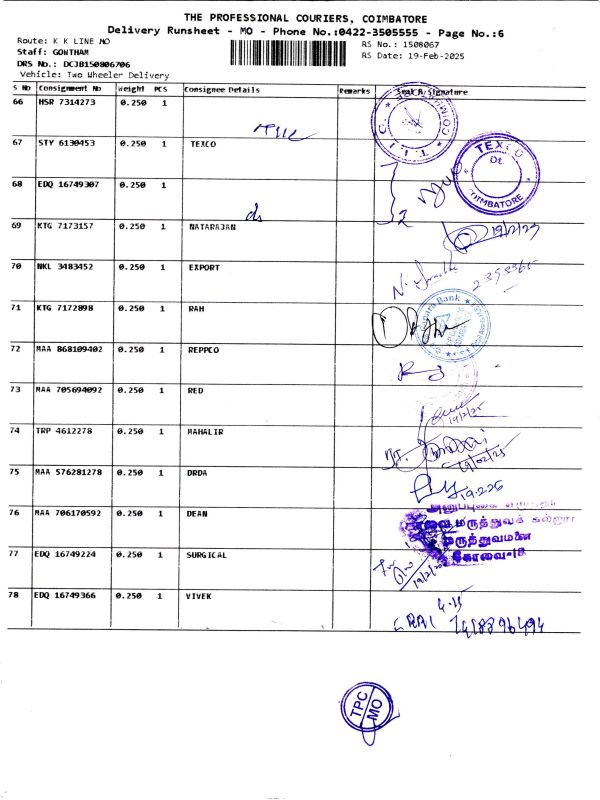 THE PROFESSIONAL COURIERS, COIMBATORE
Delivery Runsheet - MO - Phone No.:0422-3505555 - Page No.:6
Route: K K LINE MO
RS No.: 1508067
Staff: GONTHAM
RS Date: 19-Feb-2025
DRS No.: DCJB150806706
Vehicle: Two Wheeler Delivery
S No Consignment No Weight PCS Consignee Details Remarks Seal & Signature
66 HSR 7314273 0.250 1
67 STY 6130453 0.250 1 TEXCO
TEXCO
COIMBATORE
68 EDQ 16749307 0.250 1
2
69 KTG 7173157 0.250 1 NATARAJAN
19/2/25
70 NKL 3483452 0.250 1 EXPORT
71 KTG 7172898 0.250 1 RAH
Bank
72 MAA 868109402 0.250 1 REPPCO
73 MAA 705694092 0.250 1 RED
19/2/25
74 TRP 4612278 0.250 1 MAHALIR
19/02/25
75 MAA 576281278 0.250 1 DRDA
76 MAA 706170592 0.250 1 DEAN
மருத்துவக்
மருத்துவமனை
கோவை-18
77 EDQ 16749224 0.250 1 SURGICAL
78 EDQ 16749366 0.250 1 VIVEK
TPC
MO